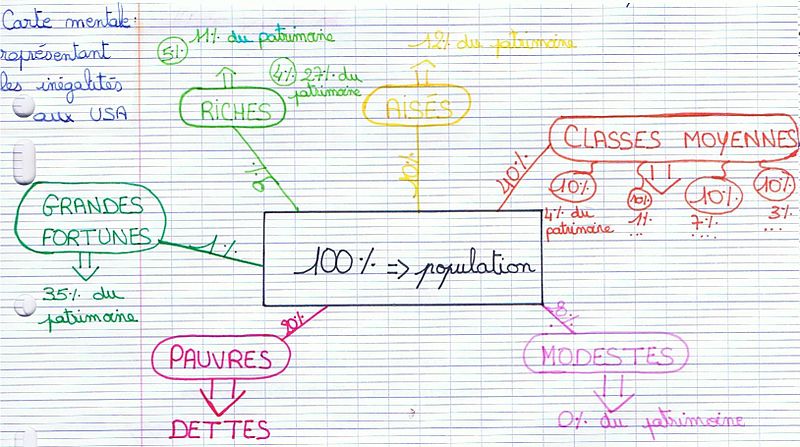 Carte mentale:
représentant
les inégalités
aux USA
5%
11% du patrimoine
4%
27% du
patrimoine
RICHES
12% du patrimoine
AISÉS
10%
CLASSES MOYENNES
40%
10%
4% du
patrimoine
10%
1%
...
10%
7%
....
10%
3%
...
GRANDES
FORTUNES
1%
35% du
patrimoine
100% => population
PAUVRES
DETTES
MODESTES
0% du patrimoine